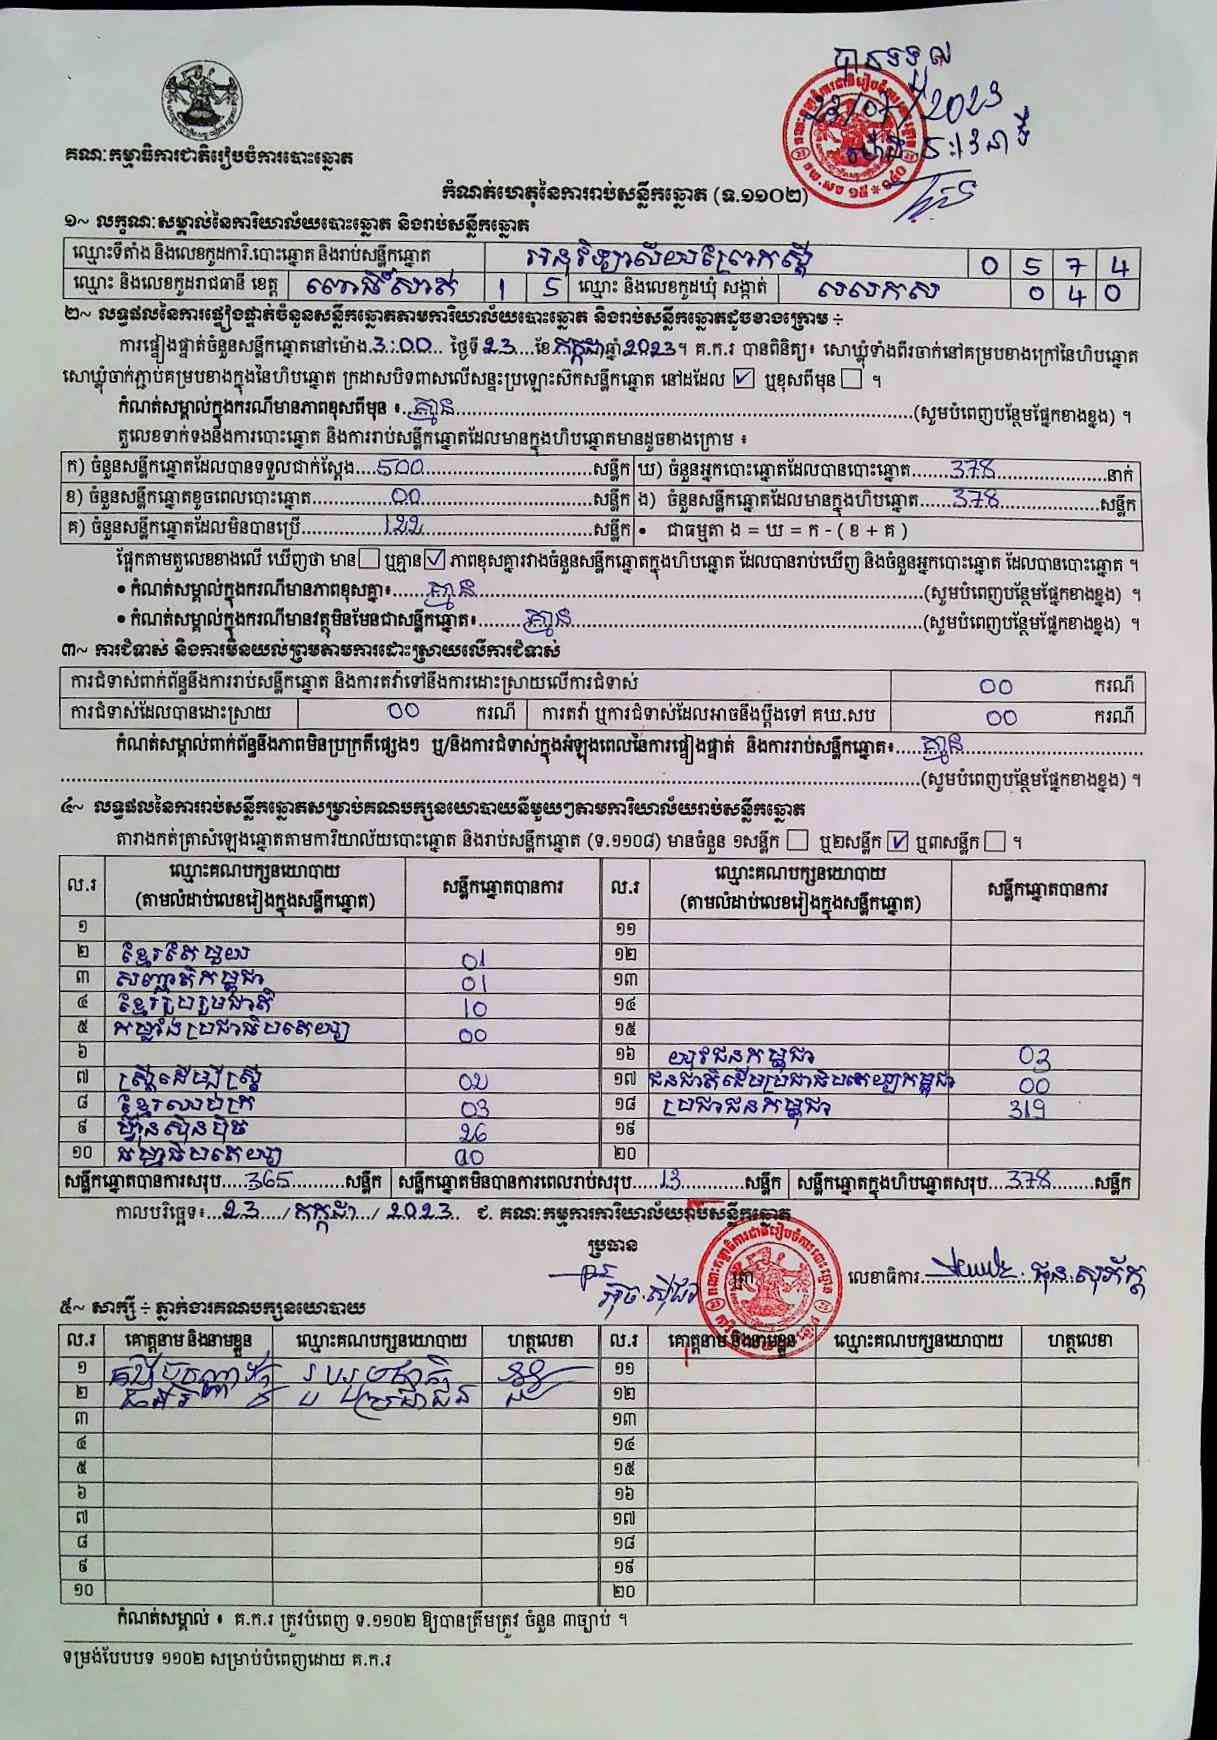 បានទទួល
23/07/2023
ម៉ោង 5:13 នាទី
គណៈកម្មាធិការជាតិរៀបចំការបោះឆ្នោត
កំណត់ហេតុនៃការរាប់សន្លឹកឆ្នោត (ទ.១១០២)
១~ លក្ខណៈសម្គាល់នៃការិយាល័យបោះឆ្នោត និងរាប់សន្លឹកឆ្នោត
ឈ្មោះទីតាំង និងលេខកូដការិ.បោះឆ្នោត និងរាប់សន្លឹកឆ្នោត អនុវិទ្យាល័យព្រែកស្តី 0 5 7 4
ឈ្មោះ និងលេខកូដរាជធានី ខេត្ត ពោធិ៍សាត់ 1 5 ឈ្មោះ និងលេខកូដឃុំ សង្កាត់ 0 4 0
២~ លទ្ធផលនៃការផ្ទៀងផ្ទាត់ចំនួនសន្លឹកឆ្នោតតាមការិយាល័យបោះឆ្នោត និងរាប់សន្លឹកឆ្នោតដូចខាងក្រោម ÷
ការផ្ទៀងផ្ទាត់ចំនួនសន្លឹកឆ្នោតនៅម៉ោង 3:00 ថ្ងៃទី 23 ខែ កក្កដា ឆ្នាំ 2023 ។ គ.ក.រ បានពិនិត្យ៖ សោឃ្លុំទាំងពីរចាក់នៅគម្របខាងក្រៅនៃហិបឆ្នោត
សោឃ្លុំចាក់ភ្ជាប់គម្របខាងក្នុងនៃហិបឆ្នោត ក្រដាសបិទពាសលើសន្ទះប្រឡោះស៊កសន្លឹកឆ្នោត នៅដដែល ☑ ឬខុសពីមុន ☐ ។
កំណត់សម្គាល់ក្នុងករណីមានភាពខុសពីមុន ៖ គ្មាន (សូមបំពេញបន្ថែមផ្នែកខាងខ្នង) ។
តួលេខទាក់ទងនឹងការបោះឆ្នោត និងការរាប់សន្លឹកឆ្នោតដែលមានក្នុងហិបឆ្នោតមានដូចខាងក្រោម ៖
ក) ចំនួនសន្លឹកឆ្នោតដែលបានទទួលជាក់ស្តែង 500 សន្លឹក ឃ) ចំនួនអ្នកបោះឆ្នោតដែលបានបោះឆ្នោត 378 នាក់
ខ) ចំនួនសន្លឹកឆ្នោតខូចពេលបោះឆ្នោត 00 សន្លឹក ង) ចំនួនសន្លឹកឆ្នោតដែលមានក្នុងហិបឆ្នោត 378 សន្លឹក
គ) ចំនួនសន្លឹកឆ្នោតដែលមិនបានប្រើ 122 សន្លឹក • ជាធម្មតា ង = ឃ = ក - ( ខ + គ )
ផ្អែកតាមតួលេខខាងលើ ឃើញថា មាន ☐ ឬគ្មាន ☑ ភាពខុសគ្នារវាងចំនួនសន្លឹកឆ្នោតក្នុងហិបឆ្នោត ដែលបានរាប់ឃើញ និងចំនួនអ្នកបោះឆ្នោត ដែលបានបោះឆ្នោត ។
• កំណត់សម្គាល់ក្នុងករណីមានភាពខុសគ្នា៖ គ្មាន (សូមបំពេញបន្ថែមផ្នែកខាងខ្នង) ។
• កំណត់សម្គាល់ក្នុងករណីមានវត្ថុមិនមែនជាសន្លឹកឆ្នោត៖ គ្មាន (សូមបំពេញបន្ថែមផ្នែកខាងខ្នង) ។
៣~ ការជំទាស់ និងការមិនយល់ព្រមតាមការដោះស្រាយលើការជំទាស់
ការជំទាស់ពាក់ព័ន្ធនឹងការរាប់សន្លឹកឆ្នោត និងការតវ៉ាទៅនឹងការដោះស្រាយលើការជំទាស់ 00 ករណី
ការជំទាស់ដែលបានដោះស្រាយ 00 ករណី ការតវ៉ា ឬការជំទាស់ដែលអាចនឹងប្តឹងទៅ គឃ.សប 00 ករណី
កំណត់សម្គាល់ពាក់ព័ន្ធនឹងភាពមិនប្រក្រតីផ្សេងៗ ឬ/និងការជំទាស់ក្នុងអំឡុងពេលនៃការផ្ទៀងផ្ទាត់ និងការរាប់សន្លឹកឆ្នោត៖ គ្មាន
(សូមបំពេញបន្ថែមផ្នែកខាងខ្នង) ។
៤~ លទ្ធផលនៃការរាប់សន្លឹកឆ្នោតសម្រាប់គណបក្សនយោបាយនីមួយៗតាមការិយាល័យរាប់សន្លឹកឆ្នោត
តារាងកត់ត្រាសំឡេងឆ្នោតតាមការិយាល័យបោះឆ្នោត និងរាប់សន្លឹកឆ្នោត (ទ.១១០៨) មានចំនួន ១សន្លឹក ☐ ឬ២សន្លឹក ☑ ឬ៣សន្លឹក ☐ ។
ល.រ ឈ្មោះគណបក្សនយោបាយ (តាមលំដាប់លេខរៀងក្នុងសន្លឹកឆ្នោត) សន្លឹកឆ្នោតបានការ ល.រ ឈ្មោះគណបក្សនយោបាយ (តាមលំដាប់លេខរៀងក្នុងសន្លឹកឆ្នោត) សន្លឹកឆ្នោតបានការ
១ ១១
២ ខ្មែរតែមួយ 01 ១២
៣ សញ្ជាតិកម្ពុជា 01 ១៣
៤ ខ្មែររួបរួមជាតិ 10 ១៤
៥ កម្លាំងប្រជាធិបតេយ្យ 00 ១៥
៦ ១៦ យុវជនកម្ពុជា 03
៧ ស្ត្រីដើម្បីស្ត្រី 02 ១៧ ជនជាតិដើមប្រជាធិបតេយ្យកម្ពុជា 00
៨ ខ្មែរឈប់ក្រ 03 ១៨ ប្រជាជនកម្ពុជា 319
៩ ហ្វ៊ុនស៊ិនប៉ិច 26 ១៩
១០ ធម្មាធិបតេយ្យ 00 ២០
សន្លឹកឆ្នោតបានការសរុប 365 សន្លឹក សន្លឹកឆ្នោតមិនបានការពេលរាប់សរុប 13 សន្លឹក សន្លឹកឆ្នោតក្នុងហិបឆ្នោតសរុប 378 សន្លឹក
កាលបរិច្ឆេទ៖ 23 / កក្កដា / 2023 ជ. គណៈកម្មការការិយាល័យរាប់សន្លឹកឆ្នោត
ប្រធាន ត្រា លេខាធិការ
៥~ សាក្សី ÷ ភ្នាក់ងារគណបក្សនយោបាយ
ល.រ គោត្តនាម និងនាមខ្លួន ឈ្មោះគណបក្សនយោបាយ ហត្ថលេខា ល.រ គោត្តនាម និងនាមខ្លួន ឈ្មោះគណបក្សនយោបាយ ហត្ថលេខា
១ ១១
២ ១២
៣ ១៣
៤ ១៤
៥ ១៥
៦ ១៦
៧ ១៧
៨ ១៨
៩ ១៩
១០ ២០
កំណត់សម្គាល់ ៖ គ.ក.រ ត្រូវបំពេញ ទ.១១០២ ឱ្យបានត្រឹមត្រូវ ចំនួន ៣ច្បាប់ ។
ទម្រង់បែបបទ ១១០២ សម្រាប់បំពេញដោយ គ.ក.រ